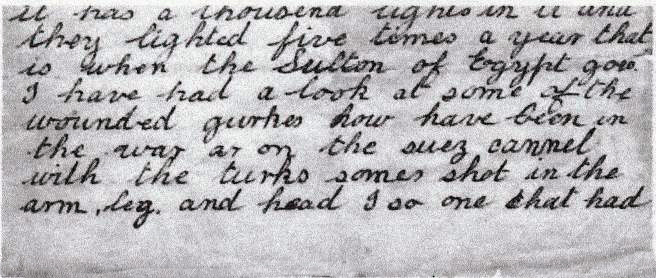 it has a thousand lights in it and
they lighted five times a year that
is when the Sulton of Egypt goes.
I have had a look at some of the
wounded gurkes how have been in
the war ar on the suez cannel
with the turks somes shot in the
arm, leg. and head I so one that had